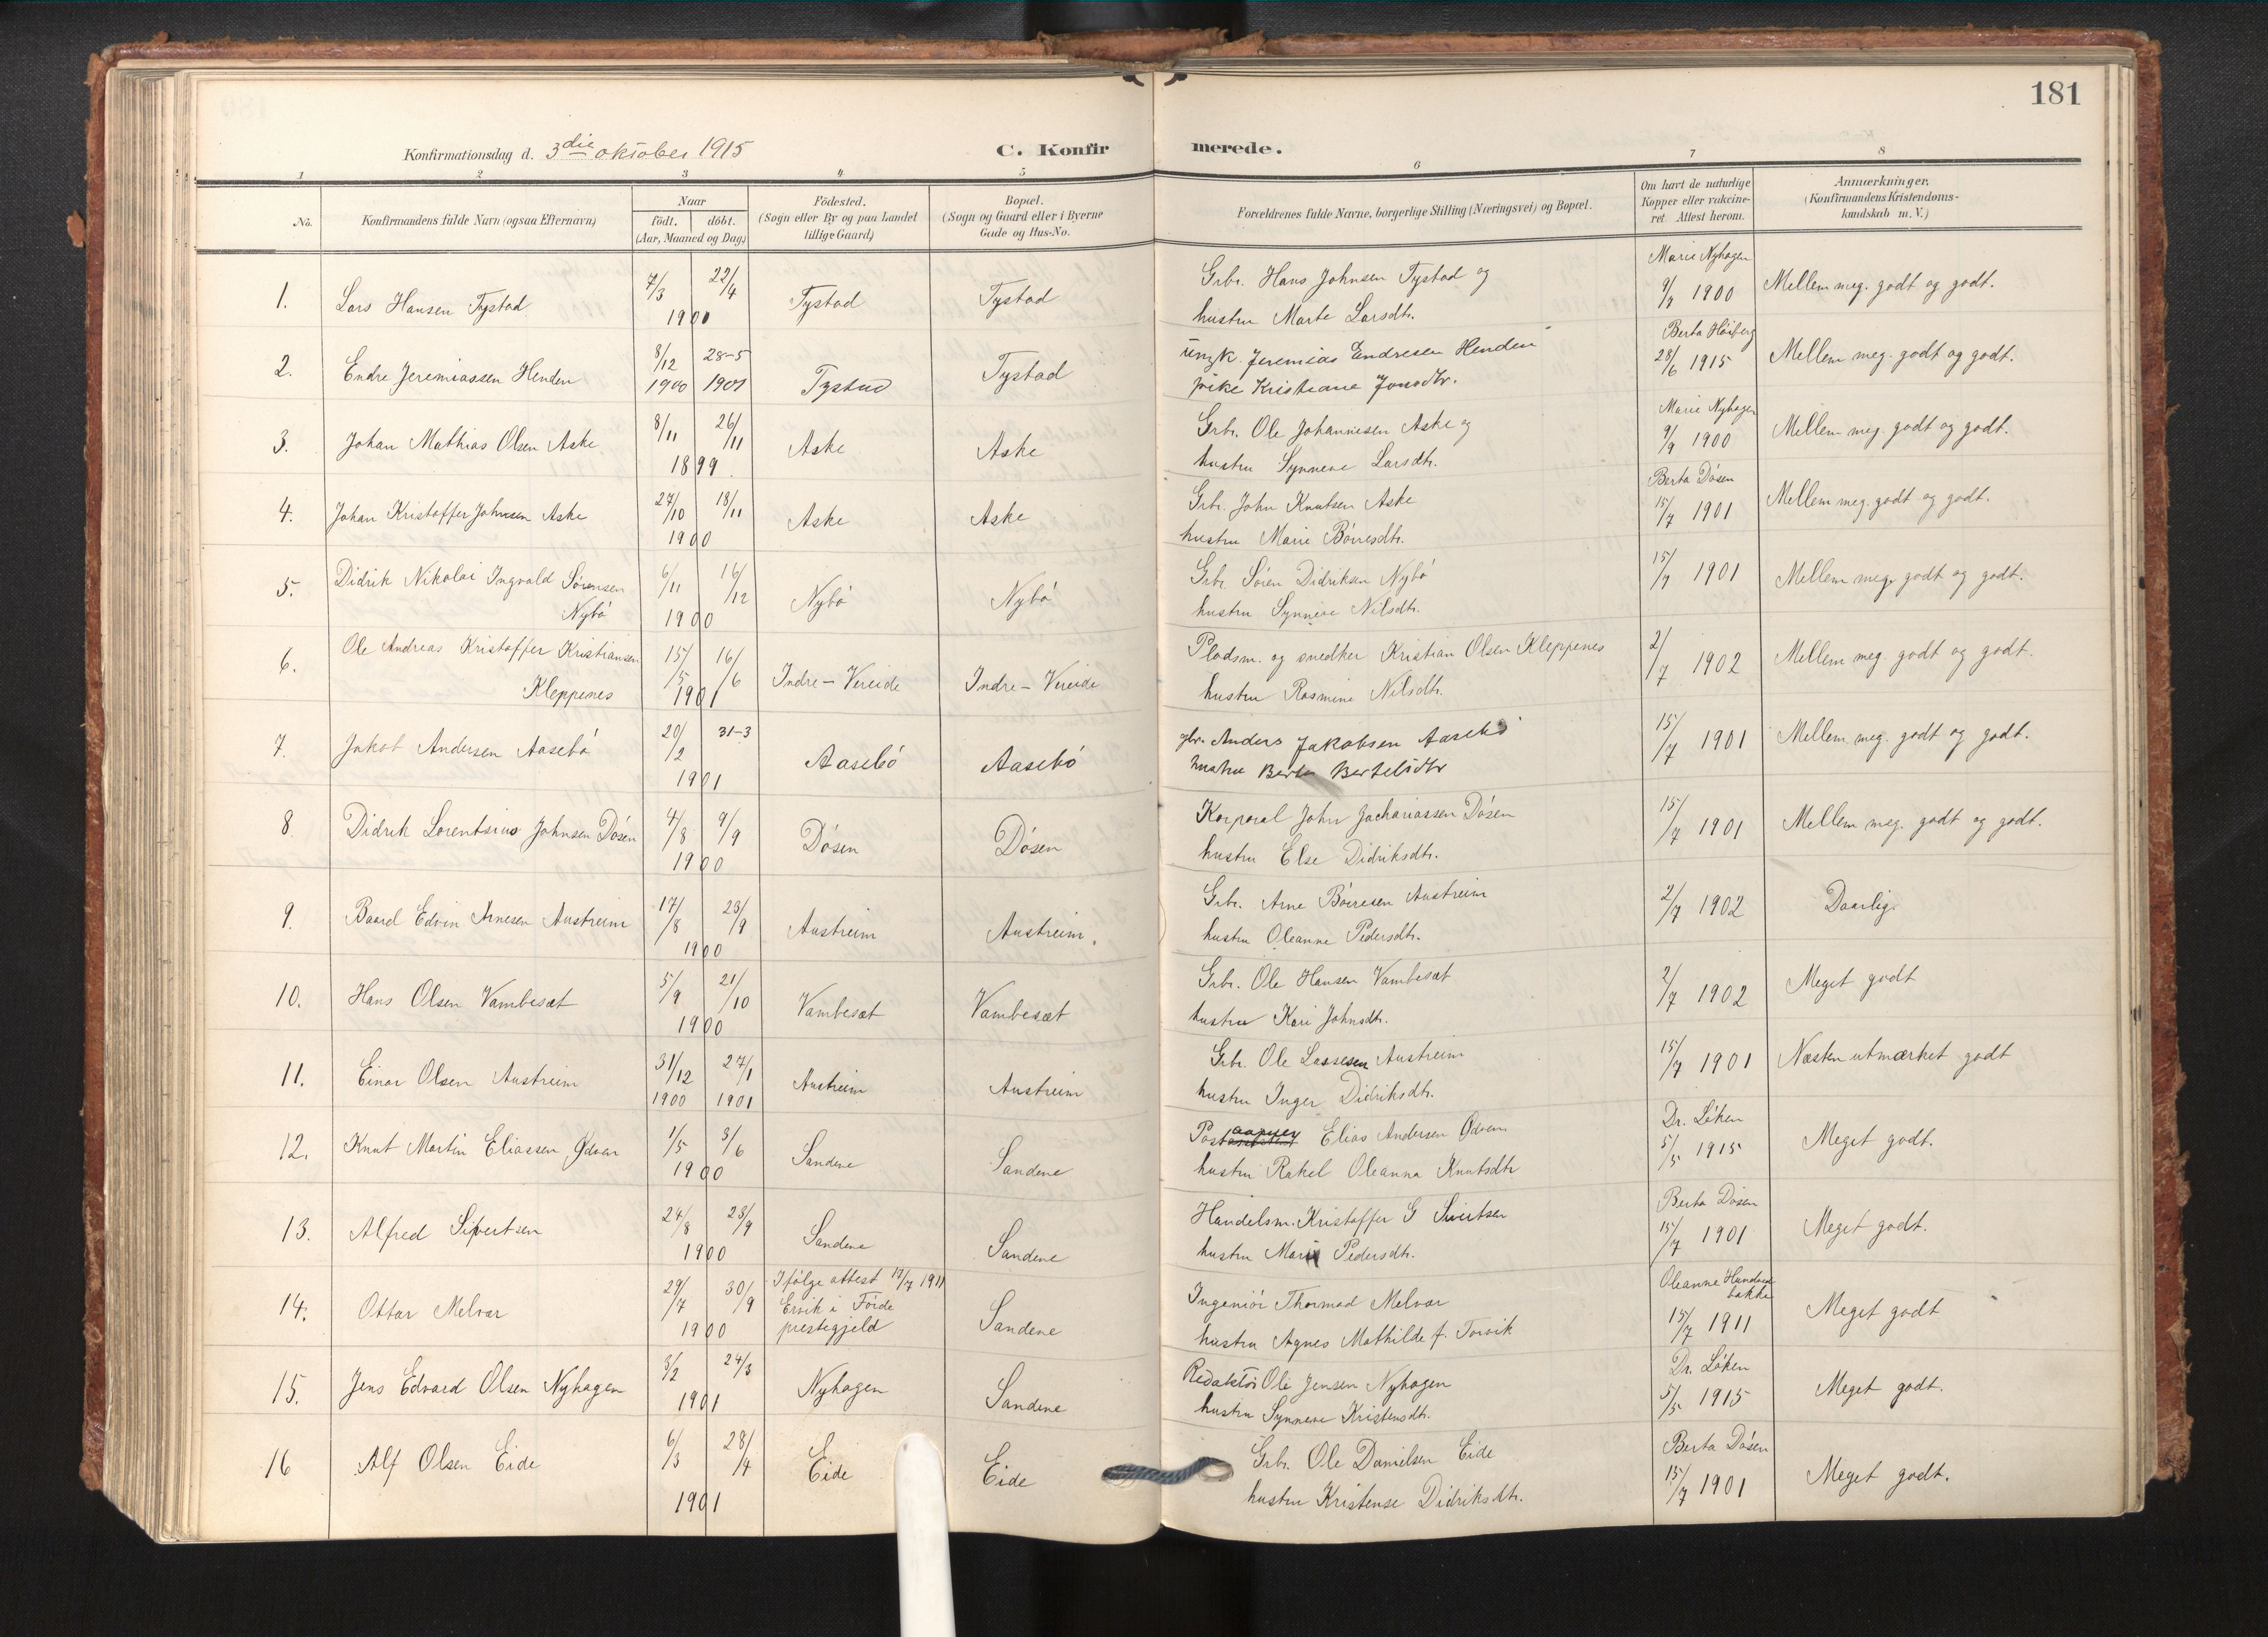 181
Konfirmationsdag d. 3die oktober 1915
C. Konfirmerede.
1 2 3 4 5 6 7 8
No.
Konfirmandens fulde Navn (ogsaa Efternavn)
Naar
födt. döbt.
(Aar, Maaned og Dag)
Födested.
(Sogn eller By og paa Landet
tillige Gaard)
Bopæl.
(Sogn og Gaard eller i Byerne
Gade og Hus-No.
Forældrenes fulde Navne, borgerlige Stilling (Næringsvei) og Bopæl.
Om havt de naturlige
Kopper eller vakcine-
ret. Attest herom.
Anmærkninger.
(Konfirmandens Kristendoms-
kundskab m. V.)
1. Lars Hansen Tystad 7/3 22/4 1900 Tystad Tystad
Grbr. Hans Johnsen Tystad og
hustru Marte Larsdtr.
Marie Nyhagen
9/7 1900 Mellem meg. godt og godt.
2. Endre Jeremiassen Henden 8/12 1900 28-5 1901 Tystad Tystad
ungk. Jeremias Endresen Henden
pike Kristiane Jonsdtr.
Berta Höiberg
28/6 1915 Mellem meg. godt og godt.
3. Johan Mathias Olsen Aske 8/11 26/11 1899. Aske Aske
Grbr. Ole Johannesen Aske og
hustru Synneve Larsdtr.
Marie Nyhagen
9/9 1900 Mellem meg. godt og godt.
4. Johan Kristoffer Johnsen Aske 27/10 18/11 1900 Aske Aske
Grbr. John Knutsen Aske
hustru Marie Börresdtr.
Berta Dösen
15/7 1901 Mellem meg. godt og godt.
5. Didrik Nikolai Ingvald Sörensen
Nybö 6/11 16/12 1900 Nybö Nybö
Grbr. Sören Didriksen Nybö
hustru Synneve Nilsdtr.
15/7 1901 Mellem meg. godt og godt.
6. Ole Andreas Kristoffer Kristiansen
Kleppenes 15/5 16/6 1901 Indre-Vereide Indre-Vereide
Pladsm. og snedker Kristian Olsen Kleppenes
hustru Rasmine Nilsdtr.
2/7 1902 Mellem meg. godt og godt.
7. Jakob Andersen Aasebö 20/2 31-3 1901 Aasebó Aasebó
gbr. Anders Jakobsen Aasebö
hustru Berta Bertelsdtr
15/7 1901 Mellem meg. godt og godt.
8. Didrik Lorentsius Johnsen Dösen 4/8 9/9 1900 Dösen Dösen
Korporal John Zachariassen Dösen
hustru Else Didriksdtr.
15/7 1901 Mellem meg. godt og godt.
9. Baard Edvin Arnesen Austreim 17/8 23/9 1900 Austreim Austreim.
Grbr. Arne Böresen Austreim
hustru Oleanne Pedersdtr.
2/7 1902 Daarlig.
10. Hans Olsen Vambesæt 5/9 21/10 1900 Vambesæt Vambesæt
Grbr. Ole Hansen Vambesæt
hustru Kari Johnsdtr.
2/7 1902 Meget godt
11. Einar Olsen Austreim 31/12 1900 27/1 1901 Austreim Austreim
Grbr. Ole Lassesen Austreim
hustru Inger Didriksdtr.
15/7 1901 Næsten utmærket godt
12. Knut Martin Eliassen Ödven 1/5 3/6 1900 Sandene Sandene
Postaapner Elias Andersen Ödven
hustru Rakel Oleanna Knutsdtr
Dr. Löken
5/5 1915 Meget godt.
13. Alfred Sivertsen 24/8 23/9 1900 Sandene Sandene
Handelsm. Kristoffer G Sivertsen
hustru Marie Pedersdtr.
Berta Dösen
15/7 1901 Meget godt.
14. Ottar Melvær 29/7 30/9 1900
Ifölge attest 17/7 1911
Ervik i Förde
prestegjeld
Sandene
Ingeniör Thormod Melvær
hustru Agnes Mathilde f. Torvik
Oleanne
15/7 1911 Meget godt
15. Jens Edvard Olsen Nyhagen 3/2 24/3 1901 Nyhagen Sandene
Redaktör Ole Jensen Nyhagen
hustru Synneve Kristensdtr.
Dr. Löken
5/5 1915 Meget godt.
16 Alf Olsen Eide 6/3 28/4 1901 Eide Eide
Grbr. Ole Danielsen Eide
hustru Kristense Didriksdtr.
Berta Dösen
15/7 1901 Meget godt.